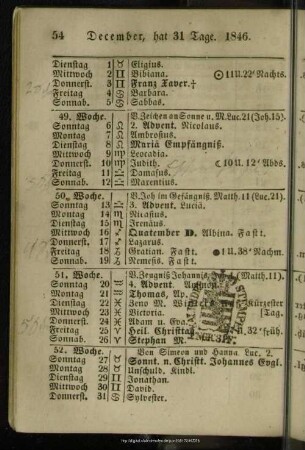 54 December, hat 31 Tage. 1846.
Dienstag 1 ♉ Eligius.
Mittwoch 2 ♊ Bibiana. 11 U. 22' Nachts.
Donnerst. 3 ♊ Franz Xaver. †
Freitag 4 ♋ Barbara.
Sonnab. 5 ♋ Sabbas.
49. Woche. V. Zeichen an Sonne u. M. Luc. 21 (Joh. 15).
Sonntag 6 ♌ 2. Advent. Nicolaus.
Montag 7 ♌ Ambrosius.
Dienstag 8 ♌ Mariä Empfängniß.
Mittwoch 9 ♍ Leocadia.
Donnerst. 10 ♍ Judith. ☾ 10 U. 12' Abds.
Freitag 11 ♎ Damasus.
Sonnab. 12 ♎ Maxentius.
50. Woche. V. Joh im Gefängniß. Matth. 11 (Luc. 21).
Sonntag 13 3. Advent. Lucia.
Montag 14 ♏ Nicasius.
Dienstag 15 ♏ Irenäus.
Mittwoch 16 ♐ Quatember D. Albina. Fast t.
Donnerst. 17 ♐ Lazarus.
Freitag 18 Gratian. Fast t. 1 U. 38' Nachm.
Sonnab. 19 Nemesius. Fast t.
51. Woche. V. Zeugniß Johannis, (Matth. 11).
Sonntag 20 ♒ 4. Advent.
Montag 21 ♒ Thomas, Ap.
Dienstag 22 ♓ Zeno M. Kürzester
Mittwoch 23 ♓ Victoria. [Tag.
Donnerst. 24 ♓ Adam u. Eva.
Freitag 25 ♈ Heil. Christtag. 32' früh.
Sonnab. 26 ♈ Stephan M.
52. Woche. Von Simeon und Hanna. Luc. 2.
Sonntag 27 ♉ Sonnt. n. Christt. Johannes Evgl.
Montag 28 ♉ Unschuld. Kindl.
Dienstag 29 ♊ Jonathan.
Mittwoch 30 ♊ David.
Donnerst. 31 ♋ Sylvester.